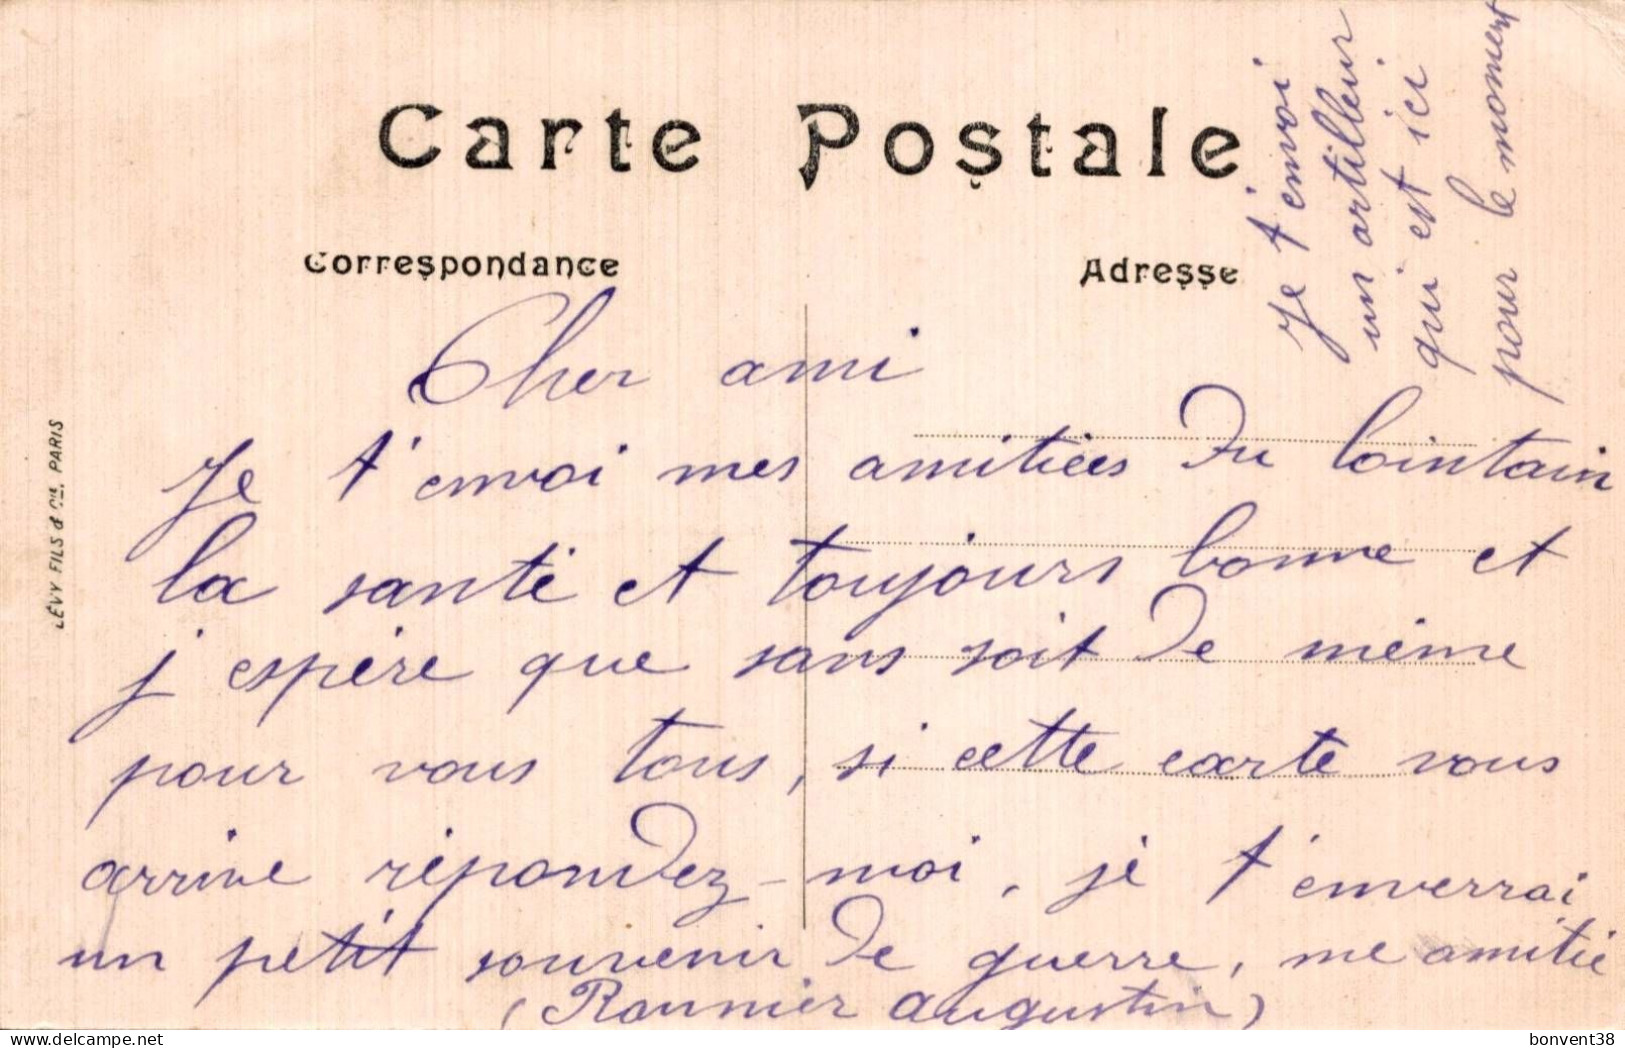 Carte Postale
Correspondance
Adresse
Je t'envoi
un artilleur
qui est ici
pour le moment
Cher ami
Je t'envoi mes amitiées Du lointain
la santé et toujours bonne et
j espère que sans soit De même
pour vous tous, si cette carte vous
arrive répondez-moi, je t'enverrai
un petit souvenir De guerre, me amitié
( augustin)
LÉVY FILS & Cie. PARIS
www.delcampe.net
bonvent38